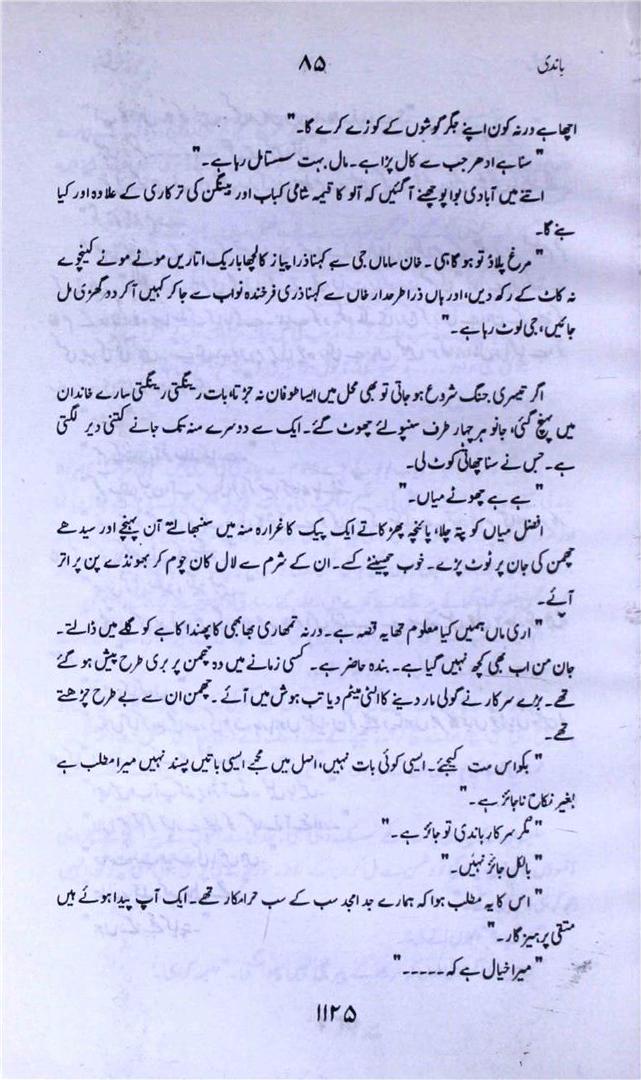 باندی
۸۵
اچھا ہے ورنہ کون اپنے جگر گوشوں کے کوڑے کرے گا۔"
"سنا ہے ادھر جب سے کال پڑا ہے۔ مال بہت سستا مل رہا ہے۔"
اتنے میں آبادی بوا پوچھنے آگئیں کہ آلو کا قیمہ شامی کباب اور بینگن کی ترکاری کے علاوہ اور کیا
بنے گا۔
"مرغ پلاؤ تو ہوگا ہی۔ خان ساماں جی سے کہنا ذرا پیاز کا لچھا باریک اتاریں موٹے موٹے کینچوے
نہ کاٹ کے رکھ دیں، اور ہاں ذرا طرحدار خاں سے کہنا ذری فرخندہ نواب سے جا کر کہیں آ کر دو گھڑی مل
جائیں، جی لوٹ رہا ہے۔"
اگر تیسری جنگ شروع ہو جاتی تو بھی محل میں ایسا طوفان نہ جڑتا، بات رینگتی رینگتی سارے خاندان
میں پہنچ گئی، جانو ہر چہار طرف سنپولئے چھوٹ گئے۔ ایک سے دوسرے منہ تک جانے کتنی دیر لگتی
ہے۔ جس نے سنا چھاتی کوٹ لی۔
"ہے ہے چھوٹے میاں۔"
افضل میاں کو پتہ چلا، پائنچہ پھڑکاتے ایک پیک کا غرارہ منہ میں سنبھالتے آن پہنچے اور سیدھے
چھمن کی جان پر ٹوٹ پڑے۔ خوب چھینٹے کسے۔ ان کے شرم سے لال کان چوم کر بھونڈے پن پر اتر
آئے۔
"اری ماں ہمیں کیا معلوم تھا یہ قصہ ہے۔ ورنہ تمہاری بھابھی کا پھندا کاہے کو گلے میں ڈالتے۔
جان من اب بھی کچھ نہیں گیا ہے۔ بندہ حاضر ہے۔ کسی زمانے میں وہ چھمن پر بری طرح پیش ہو گئے
تھے۔ بڑے سرکار نے گولی مار دینے کا الٹی میٹم دیا تب ہوش میں آئے۔ چھمن ان سے بے طرح چڑھتے
تھے۔
"بکواس مت کیجئے۔ ایسی کوئی بات نہیں، اصل میں مجھے ایسی باتیں پسند نہیں میرا مطلب ہے
بغیر نکاح ناجائز ہے۔"
"مگر سرکار باندی تو جائز ہے۔"
"بالکل جائز نہیں۔"
"اس کا یہ مطلب ہوا کہ ہمارے جد امجد سب کے سب حرامکار تھے۔ ایک آپ پیدا ہوئے ہیں
متقی پرہیز گار۔"
"میرا خیال ہے کہ ۔۔۔۔۔"
۱۱۲۵